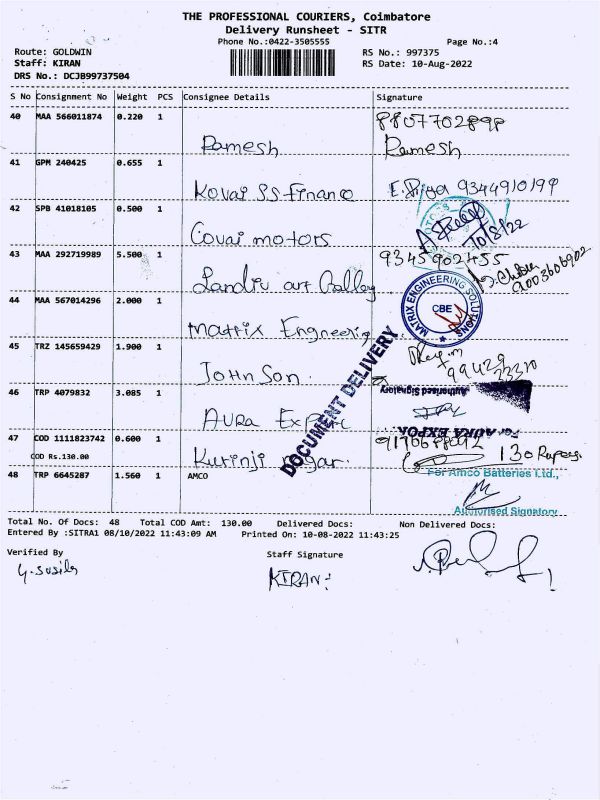 THE PROFESSIONAL COURIERS, Coimbatore
Delivery Runsheet - SITR
Phone No.:0422-3505555 Page No.:4
Route: GOLDWIN RS No.: 997375
Staff: KIRAN RS Date: 10-Aug-2022
DRS No.: DCJB99737504
S No Consignment No Weight PCS Consignee Details Signature
40 MAA 566011874 0.220 1 8807702898
Ramesh Ramesh
41 GPM 240425 0.655 1
Kovai SS Finance E. Priya 9344910199
42 SPB 41018105 0.500 1
Covai motors 10/8/22
43 MAA 292719989 5.500 1 9345902455
Landiv art Galley 9003606902
44 MAA 567014296 2.000 1 MATRIX ENGINEERING SOLUTIONS
CBE
Matrix Engneering
45 TRZ 145659429 1.900 1
John Son. 99429
23320
DOCUMENT DELIVERY
46 TRP 4079832 3.085 1 Authorised Signatory
Aura Export For AURA EXPORT
47 COD 1111823742 0.600 1
COD Rs.130.00 Kurinji nagar. 130 Rupees.
48 TRP 6645287 1.560 1 AMCO For Amco Batteries Ltd.,
Authorised Signatory
Total No. Of Docs: 48 Total COD Amt: 130.00 Delivered Docs: Non Delivered Docs:
Entered By :SITRA1 08/10/2022 11:43:09 AM Printed On: 10-08-2022 11:43:25
Verified By Staff Signature
G. Susila KIRAN